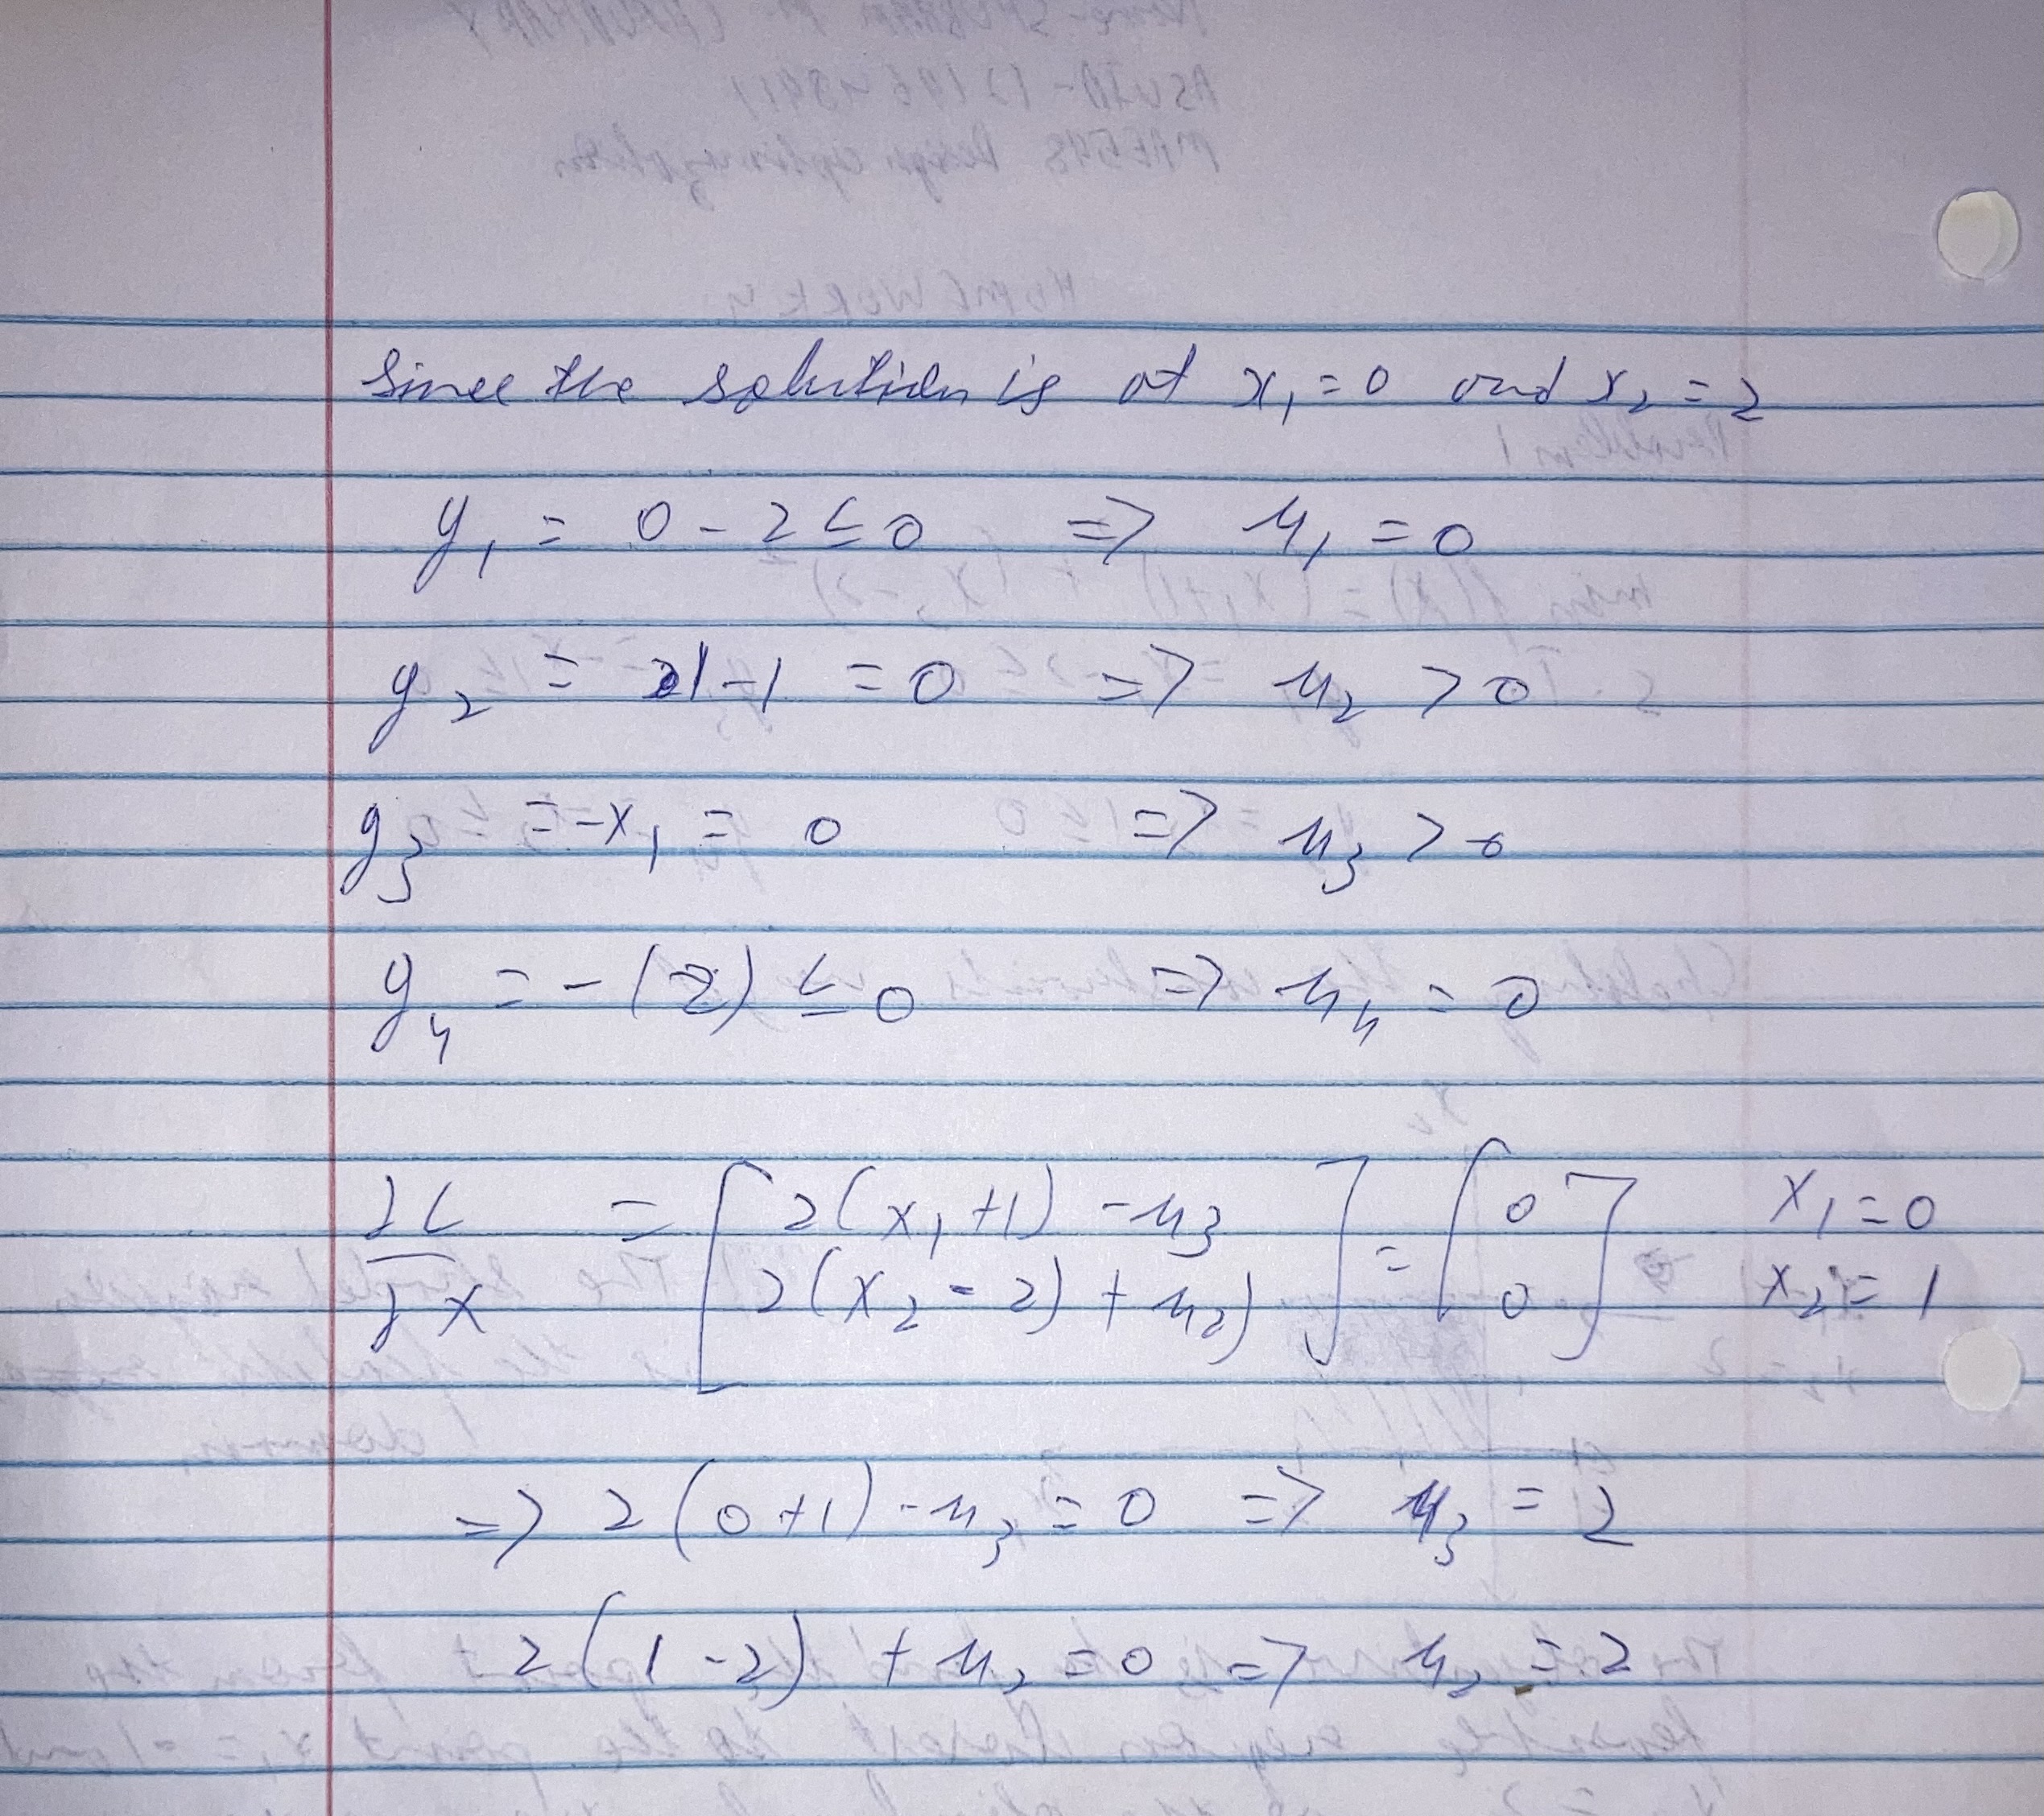 Since the solution is at x₁ = 0 and x₂ = 2
g₁ = 0 - 2 ≤ 0 => μ₁ = 0
g₂ = 1 - 1 = 0 => μ₂ > 0
g₃ = -x₁ = 0 => μ₃ > 0
g₄ = -(2) ≤ 0 => μ₄ = 0
∂L/∂x = [2(x₁+1) - μ₃ = [0 x₁ = 0
2(x₂ - 2) + μ₂)] 0] x₂ = 1
=> 2(0+1) - μ₃ = 0 => μ₃ = 2
2(1-2) + μ₂ = 0 => μ₂ = 2